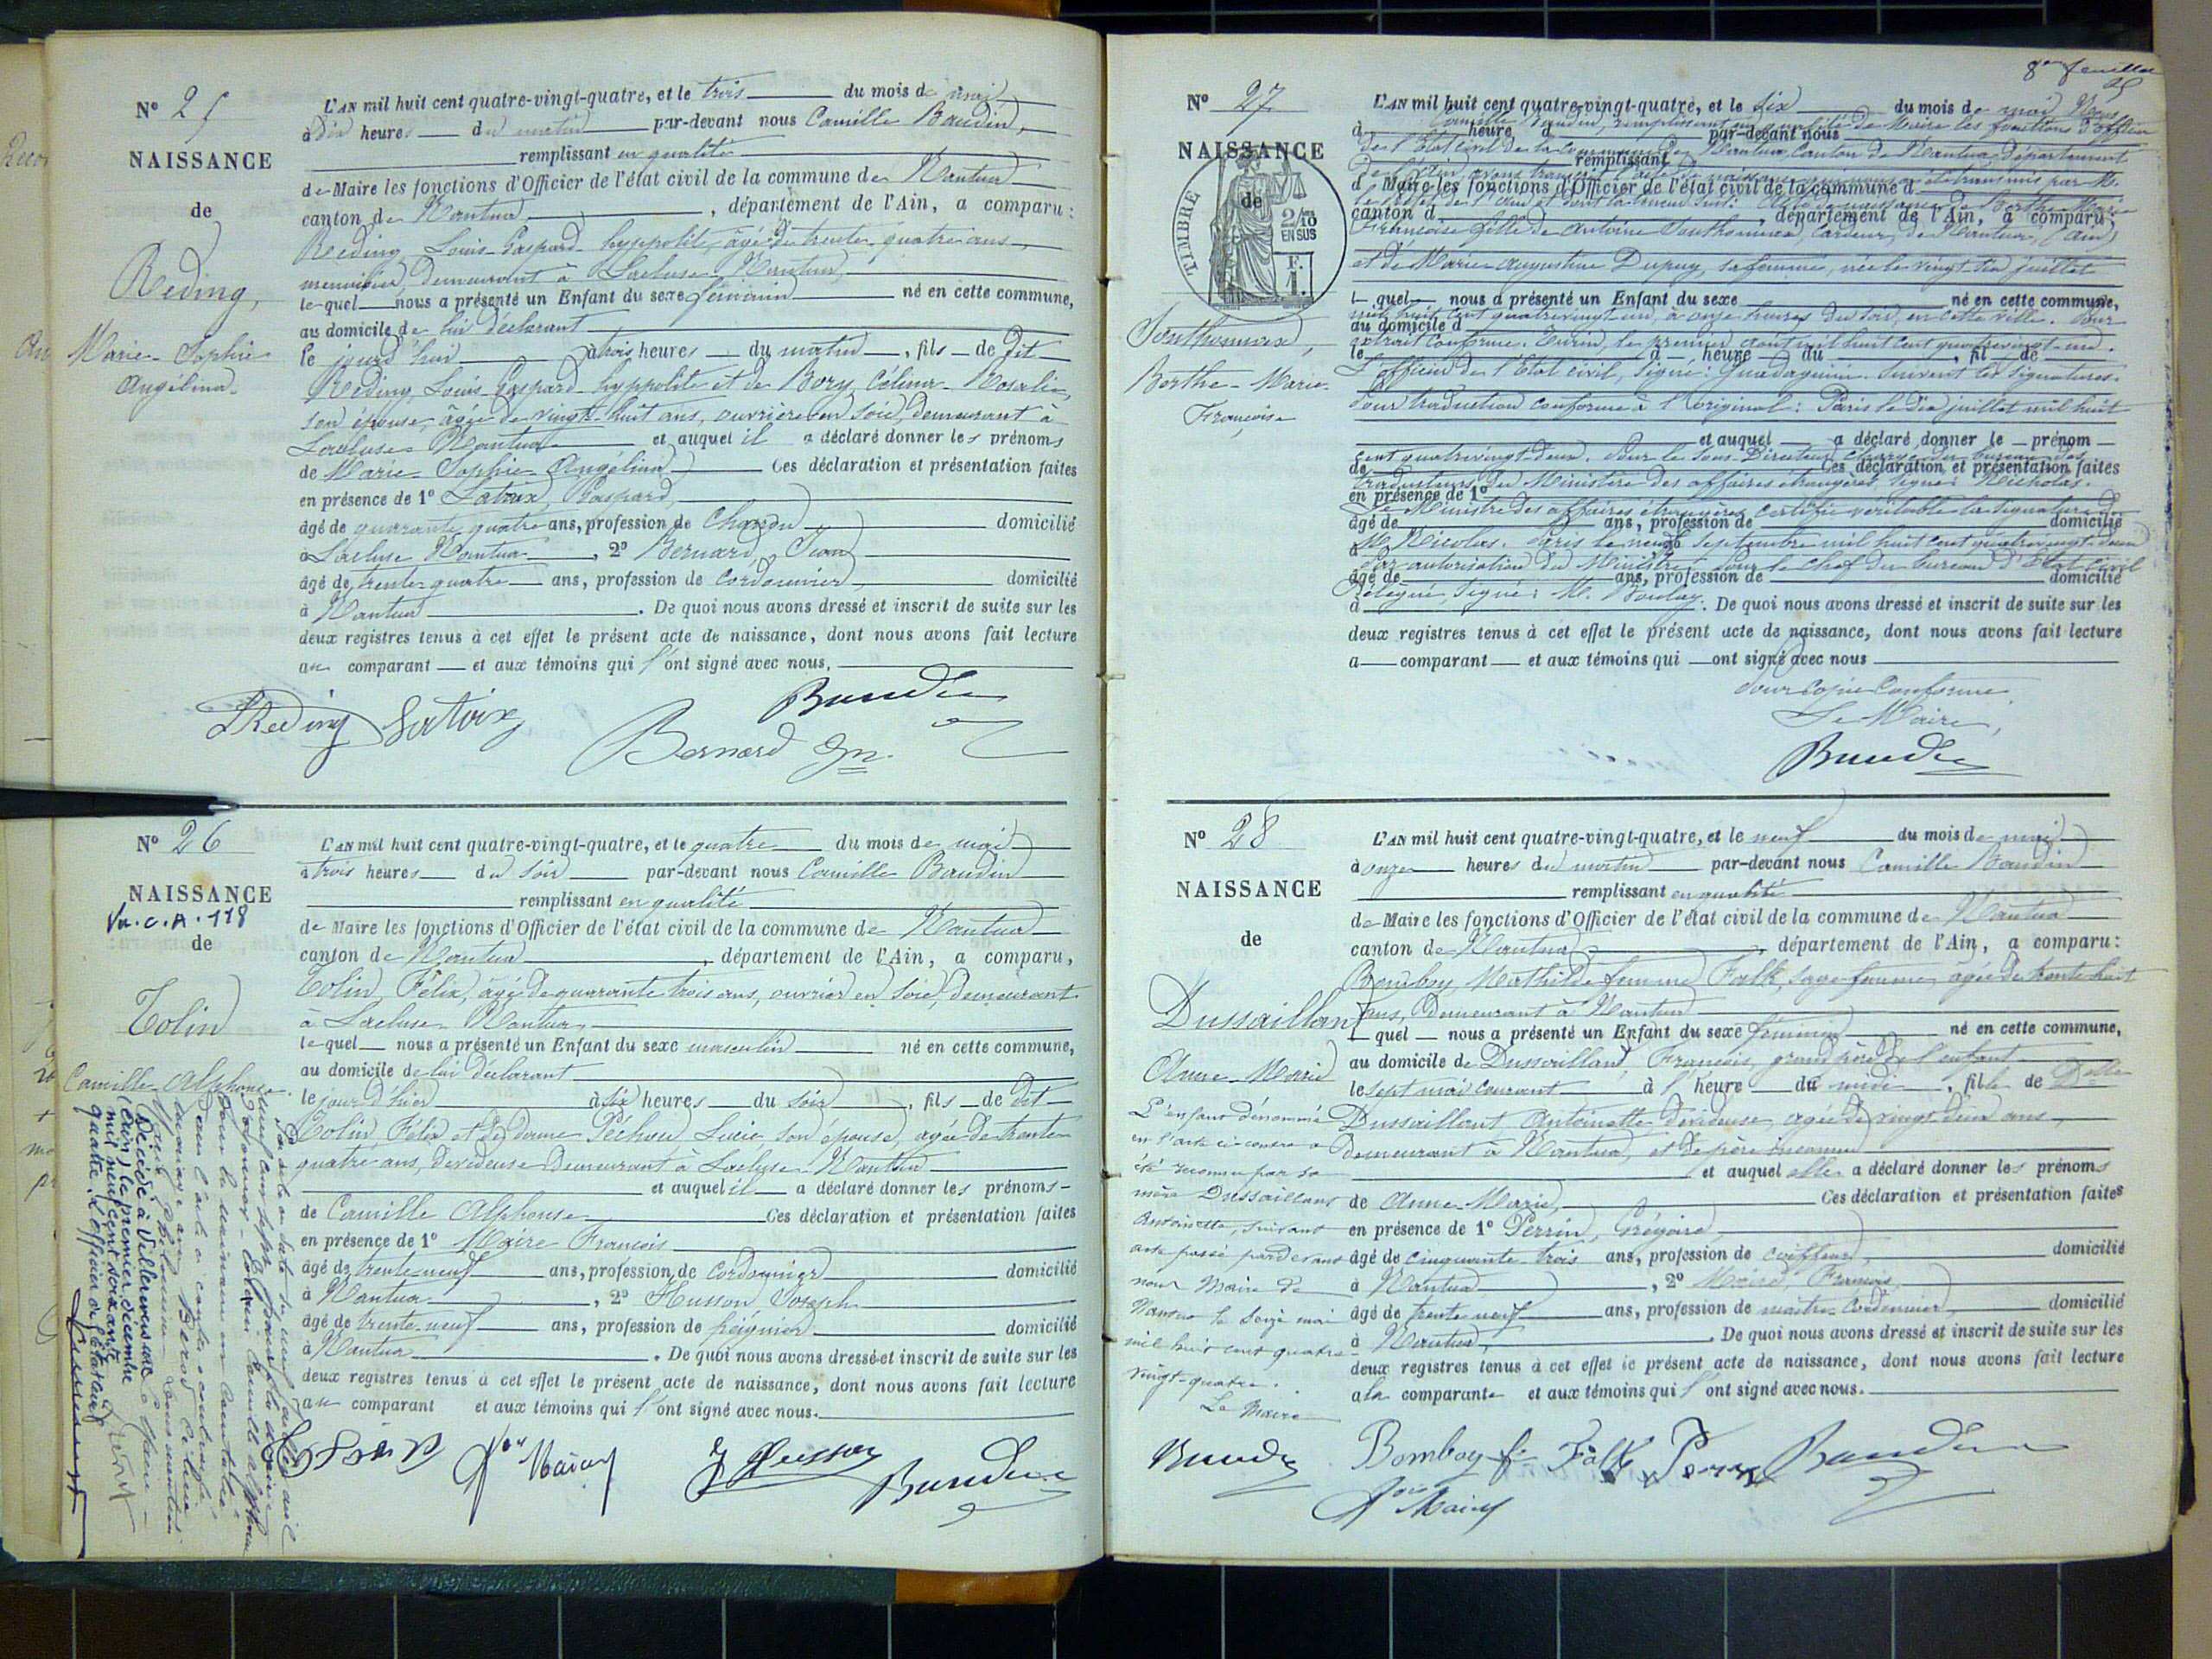 N° 25
NAISSANCE
de
Reding,
Marie-Sophie
Angélina
L'AN mil huit cent quatre-vingt-quatre, et le trois du mois de mai
à Dix heures du matin par-devant nous Camille Baudin,
remplissant en qualité
de Maire les fonctions d'Officier de l'état civil de la commune de Nantua
canton de Nantua, département de l'Ain, a comparu :
Reding, Louis Gaspard hyppolite, âgé de trente-quatre ans,
menuisier, demeurant à Lacluse-Nantua,
lequel nous a présenté un Enfant du sexe féminin né en cette commune,
au domicile de lui déclarant
le jourd'hui à trois heures du matin, fils de Dit
Reding, Louis Gaspard hyppolite et de Bory, Célina-Rosalie,
son épouse, âgée de vingt-huit ans, ouvrière en soie, demeurant à
Lacluse-Nantua et auquel il a déclaré donner les prénoms
de Marie-Sophie-Angélina Ces déclaration et présentation faites
en présence de 1° Latoix, Gaspard,
âgé de quarante quatre ans, profession de Charon domicilié
à Lacluse Nantua, 2° Bernard, Jean
âgé de trente-quatre ans, profession de cordonnier, domicilié
à Nantua. De quoi nous avons dressé et inscrit de suite sur les
deux registres tenus à cet effet le présent acte de naissance, dont nous avons fait lecture
au comparant et aux témoins qui l'ont signé avec nous.
LReding Latoix Baudin
Bernard Jn
N° 26
NAISSANCE
Vu. C.A. 118
de
Tolin
Camille Alphonse
L'AN mil huit cent quatre-vingt-quatre, et le quatre du mois de mai
à trois heures du soir par-devant nous Camille Baudin
remplissant en qualité
de Maire les fonctions d'Officier de l'état civil de la commune de Nantua
canton de Nantua, département de l'Ain, a comparu,
Tolin, Félix, âgé de quarante trois ans, ouvrier en soie, demeurant
à Lacluse-Nantua,
lequel nous a présenté un Enfant du sexe masculin né en cette commune,
au domicile de lui déclarant
le jour d'hier à six heures du soir, fils de Dit
Tolin, Félix et de dame Péchou Lucie, son épouse, agée de trente
quatre ans, devideuse demeurant à Lacluse-Nantua
et auquel il a déclaré donner les prénoms
de Camille Alphonse Ces déclaration et présentation faites
en présence de 1° Maire François
âgé de trente-neuf ans, profession de Cordonnier domicilié
à Nantua, 2° Husson Joseph
âgé de trente-neuf ans, profession de peignier domicilié
à Nantua. De quoi nous avons dressé et inscrit de suite sur les
deux registres tenus à cet effet le présent acte de naissance, dont nous avons fait lecture
au comparant et aux témoins qui l'ont signé avec nous.
Décédé à Villereversure
(Ain) le premier décembre
mil neuf cent soixante
quatre. L'officier de l'état civil
J Husson
Baudin
8me feuillet
25
N° 27
NAISSANCE
de
TIMBRE
2/10
EN SUS
F.
1.
Southonnax,
Berthe-Marie
Françoise
L'AN mil huit cent quatre-vingt-quatre, et le six du mois de mai Nous
Camille Baudin, remplissant en qualité de Maire les fonctions d'officier
à heure d par-devant nous
de l'Etat civil de la commune de Nantua, Canton de Nantua, département
remplissant
de l'Ain, avons transcrit l'acte de naissance qui nous a été transmis par M.
d Maire les fonctions d'Officier de l'état civil de la commune d
le Préfet de l'Ain et dont la teneur suit: Acte de naissance de Berthe-Marie
canton d , département de l'Ain, a comparu :
Françoise fille de Antoine Southonnax, Cardeur, de Nantua, (Ain)
et de Marie-Augustine Dupuy, sa femme, née le vingt-six juillet
l quel nous a présenté un Enfant du sexe né en cette commune,
mil huit cent quatrevingt-un, à onze heures du soir, en cette ville. Pour
au domicile d
extrait conforme. Turin, le premier août mil huit cent quatrevingt-un.
le à heure du , fil de
L'officier de l'Etat civil, signé: Guadagnini. Suivent les signatures.
Pour traduction conforme à l'original: Paris le dix juillet mil huit
et auquel a déclaré donner le prénom
cent quatrevingt-deux. Pour le Sous-Directeur chargé du bureau des
de Ces déclaration et présentation faites
traducteurs du Ministère des affaires étrangères, signé: Nicholas.
en présence de 1°
Le Ministre des affaires étrangères certifie véritable la signature de
âgé de ans, profession de domicilié
M. Nicolas. Paris le neuf Septembre mil huit cent quatrevingt deux
Par autorisation du Ministre pour le Chef du bureau d'Etat civil
âgé de ans, profession de domicilié
Délégué, signé: M. Boulay.
à . De quoi nous avons dressé et inscrit de suite sur les
deux registres tenus à cet effet le présent acte de naissance, dont nous avons fait lecture
a comparant et aux témoins qui ont signé avec nous
Pour copie conforme
Le Maire,
Baudin
N° 28
NAISSANCE
de
Dussaillant
Anne-Marie
L'enfant dénommé
en l'acte ci-contre a
été reconnu par sa
mère Dussaillant
Antoinette, suivant
acte passé pardevant
nous Maire de
Nantua le seize mai
mil huit cent quatre-
vingt-quatre.
Le Maire
Baudin
L'AN mil huit cent quatre-vingt-quatre, et le neuf du mois de mai
à onze heures du matin par-devant nous Camille Baudin
remplissant en qualité
de Maire les fonctions d'Officier de l'état civil de la commune de Nantua
canton de Nantua, département de l'Ain, a comparu :
Bomboy, Mathilde femme Falk, sage-femme, agée de trente huit
ans, demeurant à Nantua
L quel nous a présenté un Enfant du sexe féminin né en cette commune,
au domicile de Dussaillant, François, grand père de l'enfant
le sept mai courant à l'heure du midi, fille de Delle
Dussaillant Antoinette, devideuse, agée de vingt deux ans,
demeurant à Nantua, et de père inconnu
et auquel elle a déclaré donner les prénoms
de Anne-Marie, Ces déclaration et présentation faites
en présence de 1° Perrin, Grégoire,
âgé de cinquante trois ans, profession de coiffeur, domicilié
à Nantua, 2° Maire, François,
âgé de trente neuf ans, profession de maître Cordonnier, domicilié
à Nantua. De quoi nous avons dressé et inscrit de suite sur les
deux registres tenus à cet effet le présent acte de naissance, dont nous avons fait lecture
à la comparante et aux témoins qui l'ont signé avec nous.
Bomboy f. Falk Perrin Baudin